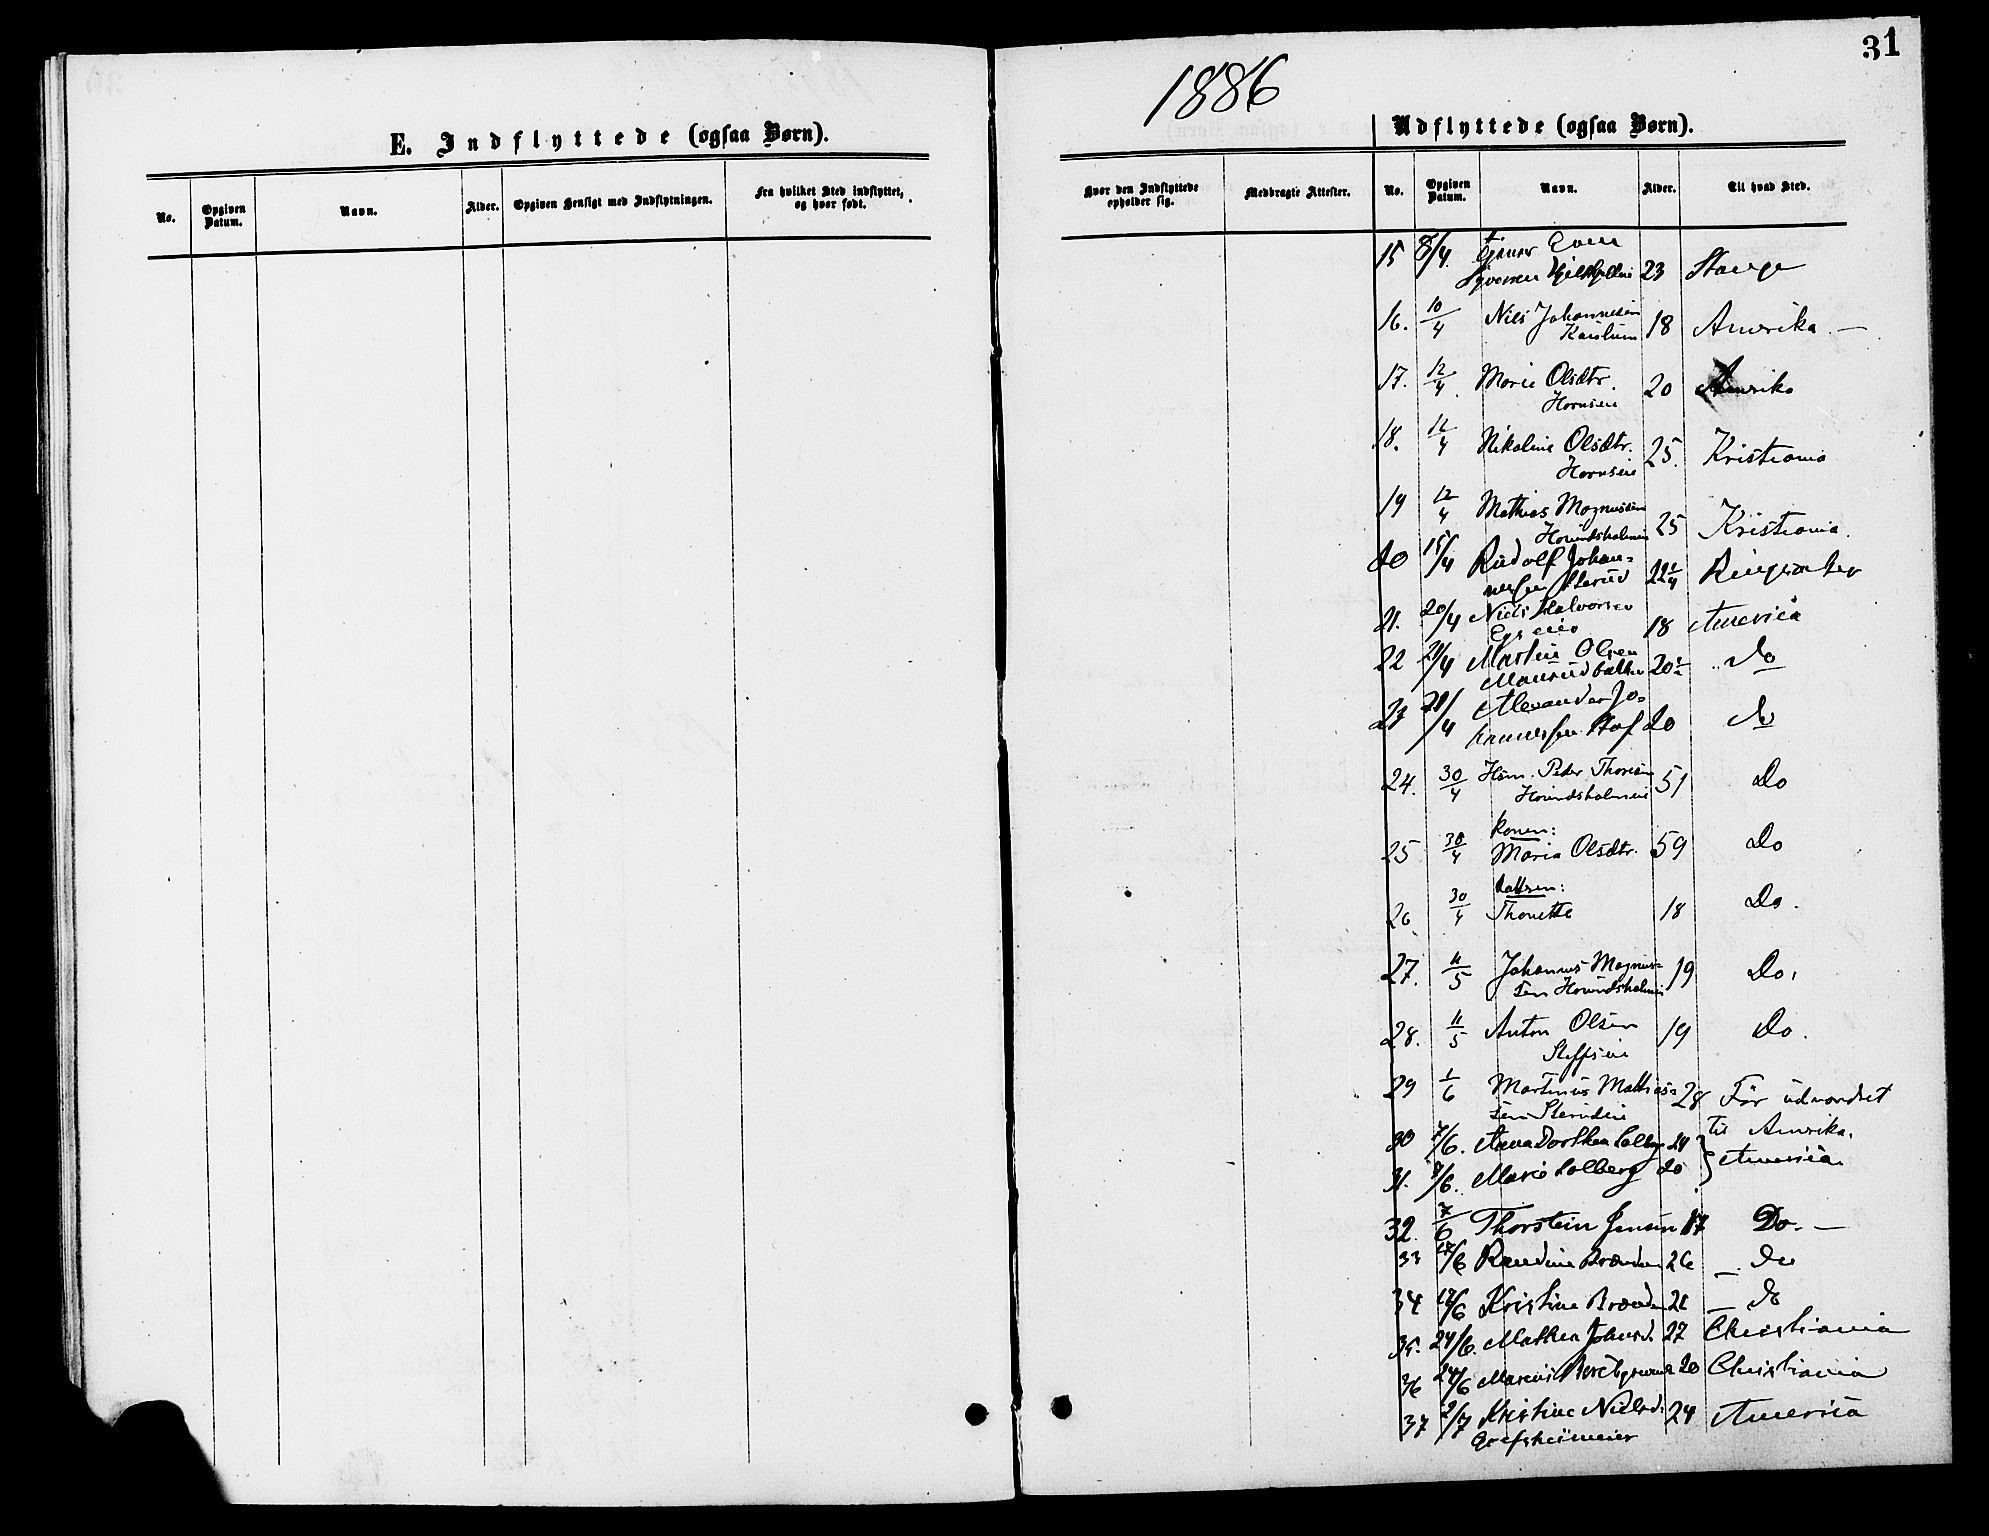 31
1886
E. Indflyttede (ogsaa Børn).
No. Opgiven Datum. Navn. Alder. Opgiven Hensigt med Indflytningen. Fra hvilket Sted indflyttet, og hvor født.
Udflyttede (ogsaa Børn).
Hvor den Indflyttede opholder sig. Medbragte Attester. No. Opgiven Datum. Navn. Alder. Til hvad Sted.
15 8/4. Even
23 Stange
16. 10/4 Nils Johannesen
18 Amerika
17. 12/4 Marie Olsdtr.
Hornseie 20 Amerika
18. 12/4 Nikoline Olsdtr.
Hornseie 25. Kristiania
19 12/4 Mathias Magnussen
Hovindsholmeie 25 Kristiania.
20 15/4 Rudolf Johan-
nessen 22 1/4 Ringsaker
21. 20/4 Niels Halvorsen
18 America
22 21/4 Martin Olsen
20 Do
23 21/4 Alexander Jo-
hannessen Hof 20 Do
24. 30/4 Hsm. Peder Thoresen
Hovindsholmeie 51 Do
25 30/4 Konen:
Maria Olsdtr. 59 Do
26 30/4 Dattren:
Thonette 18 Do.
27. 11/5 Johannes Magnus-
sen Hovindsholmeie 19 Do.
28. 11/5 Anton Olsen
19 Do.
29 1/6 Martinus Mathias-
sen 28 Før udvandret
til Amerika.
30 7/6. Anna Dorthea Solberg 24
31. 7/6. Marie Solberg 20 America
32. 7/6 Thorstein Jensen 17 Do.
33 17/6 Randine Brænden 26 Do
34 17/6 Kristine Brænden 21 do
35. 24/6. Mathea Johnsd. 27 Christiania
36 24/6 20 Christiania
37 2/7 Kristine Nielsd. 24 America
Grefsheimeier